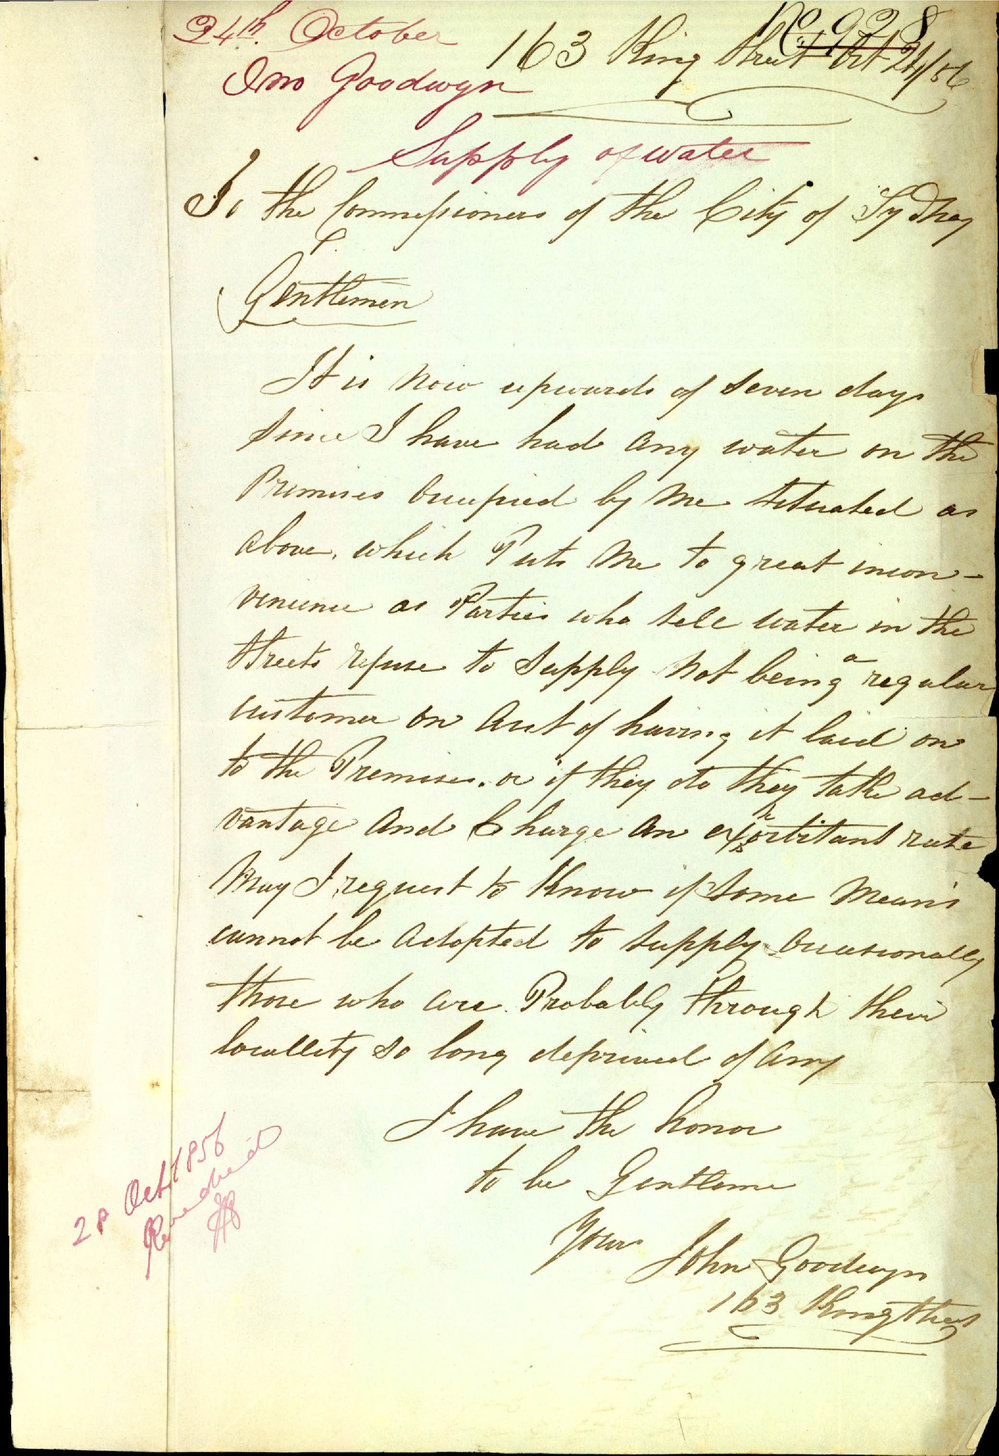 24th October
No 928
163 King Street Oct 24/56
Jno Goodwyn
Supply of water
To the Commissioners of the City of Sydney
Gentlemen
It is now upwards of seven days
since I have had any water on the
Premises Occupied by me situated as
above, which Puts me to great incon-
venience as Parties who sell water in the
streets refuse to supply not being a regular
customer on Acct of having it laid on
to the Premises. or if they do they take ad-
vantage and Charge an exorbitant rate
May I request to Know if some means
cannot be adopted to supply occasionally
those who are Probably through their
locallity so long deprived of any
I have the honor
to be Gentlemen
Yours
John Goodwyn
163 King Street
28 Oct 1856